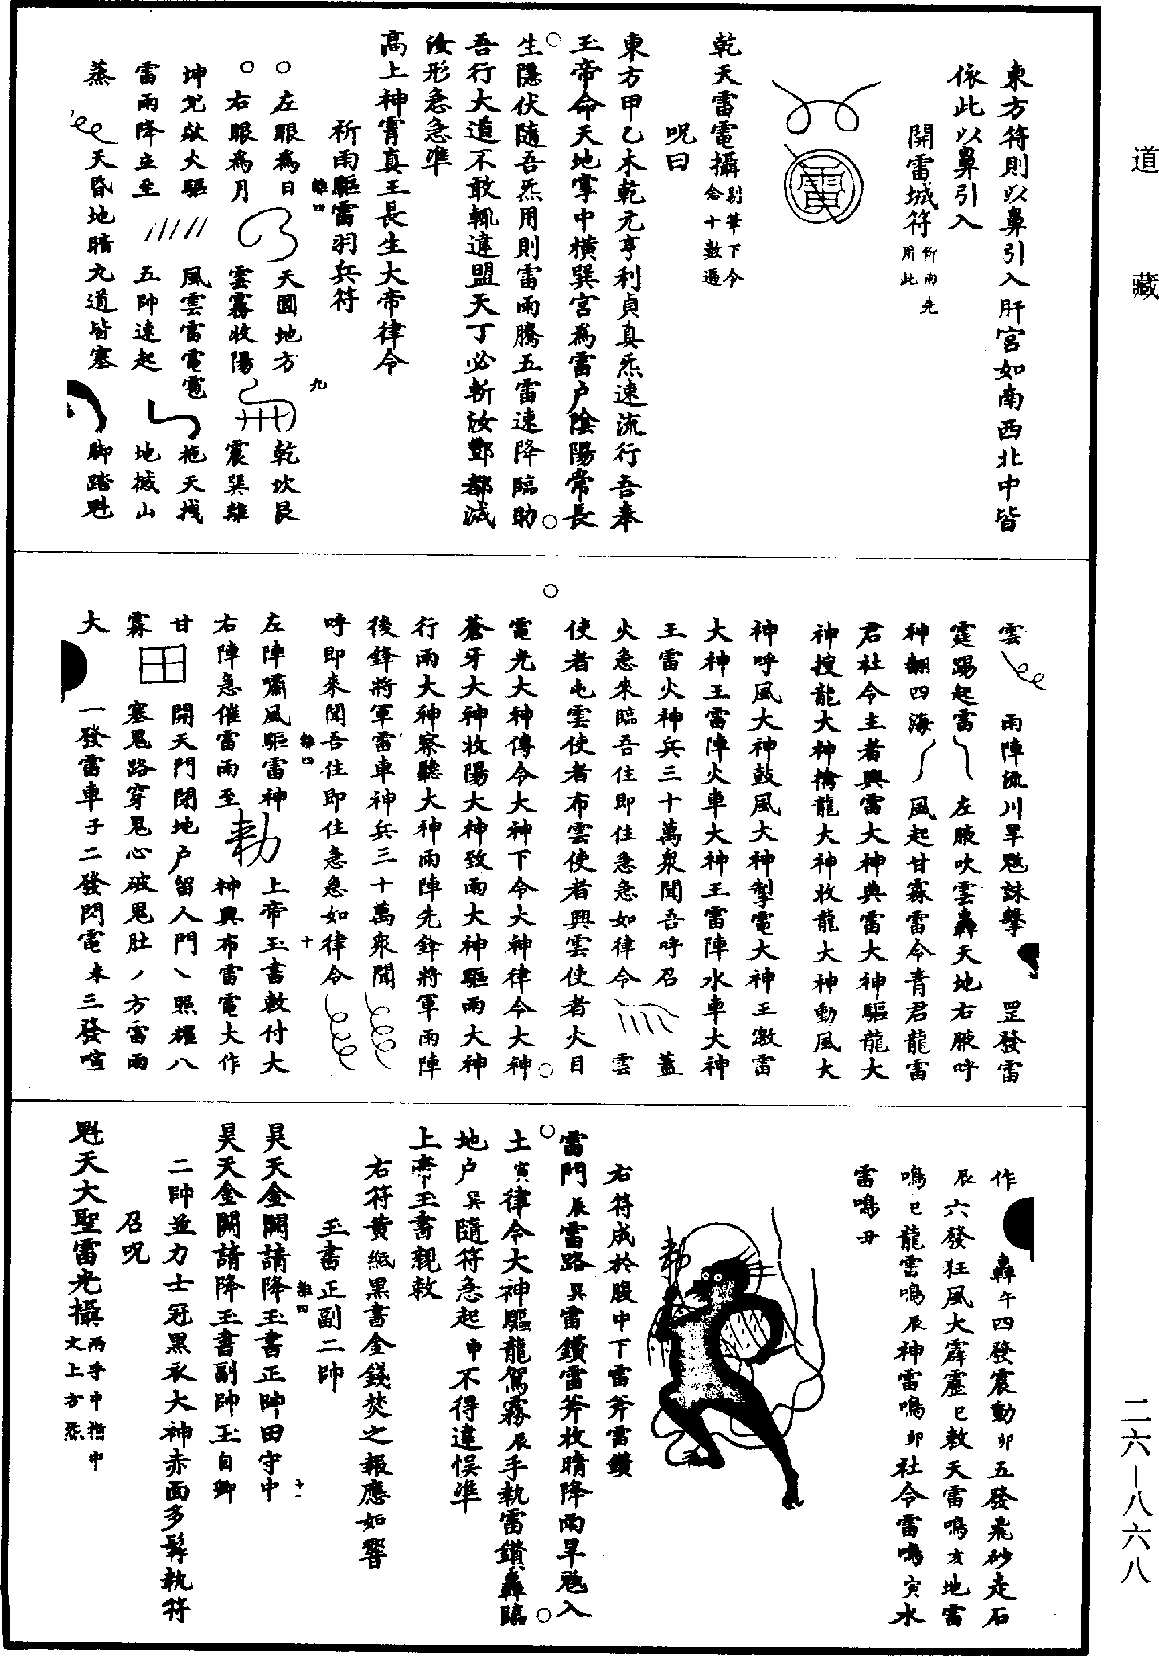 道藏
東方符則以鼻引入肝宮如南西北中皆
依此以鼻引入
開雷城符祈雨先用此
乾天雷電攝剔筆下令念十數遍
呪曰
東方甲乙木乾元亨利貞真炁速流行吾奉
玉帝命天地掌中橫巽宮為雷户陰陽常長
生隱伏隨吾炁用則雷雨騰五雷速降臨助
吾行大道不敢輒違盟天丁必斬汝酆都滅
汝形急急準
高上神霄真王長生大帝律令
祈雨驅雷羽兵符
離四
九
左眼為日 天圓地方 乾坎艮
右眼為月 雲霧收陽 震巽離
坤兌歘火驅 風雲雷電電 拖天找
雷雨降立至 五帥速起 地撼山
蒸 天昏地暗九道皆塞 脚踏魁
雲 雨陣流川旱魃誅擊 罡發雷
霆踢起雷 左腋吹雲轟天地右腋呼
神翻四海 風起甘霖雷令青君龍雷
君社令主者興雷大神典雷大神驅龍大
神搜龍大神擒龍大神收龍大神動風大
神呼風大神鼓風大神掣電大神王激雷
大神王雷陣火車大神王雷陣水車大神
王雷火神兵三十萬衆聞吾呼召 蓋
火急來臨吾住即住急急如律令 雲
使者屯雲使者布雲使者興雲使者火目
電光大神傳令大神下令大神律令大神
蒼牙大神收陽大神致雨大神驅雨大神
行雨大神察聽大神雨陣先鋒將軍雨陣
後鋒將軍雷車神兵三十萬衆聞
呼即來聞吾住即住急急如律令
離四
十
左陣嘯風驅雷神 上帝玉書敕付大
右陣急催雷雨至 勅 神興布雷電大作
甘 開天門閉地户留人門 照耀八
霖 塞鬼路穿鬼心破鬼肚 方雷雨
大 一發雷車子二發閃電未三發喧
作 轟午四發震動卯五發飛砂走石
辰六發狂風大霹靂巳敕天雷鳴亥地雷
鳴巳龍雲鳴辰神雷鳴卯社令雷鳴寅水
雷鳴丑
勅
右符成於腹中下雷斧雷鑽
雷門辰雷路巽雷鑽雷斧收晴降雨旱魃入
土寅律令大神驅龍駕霧辰手執雷鑽轟臨
地户巽隨符急起申不得違悮準
上帝玉書親敕
右符黄紙黑書金錢焚之報應如響
玉書正副二帥
離四
十一
昊天金闕請降玉書正帥田守中
昊天金闕請降玉書副帥王自卿
二帥並力士冠黑衣大神赤面多髯執符
召呪
魁天大聖雷光攝兩手中指中文上方炁
二六—八六八